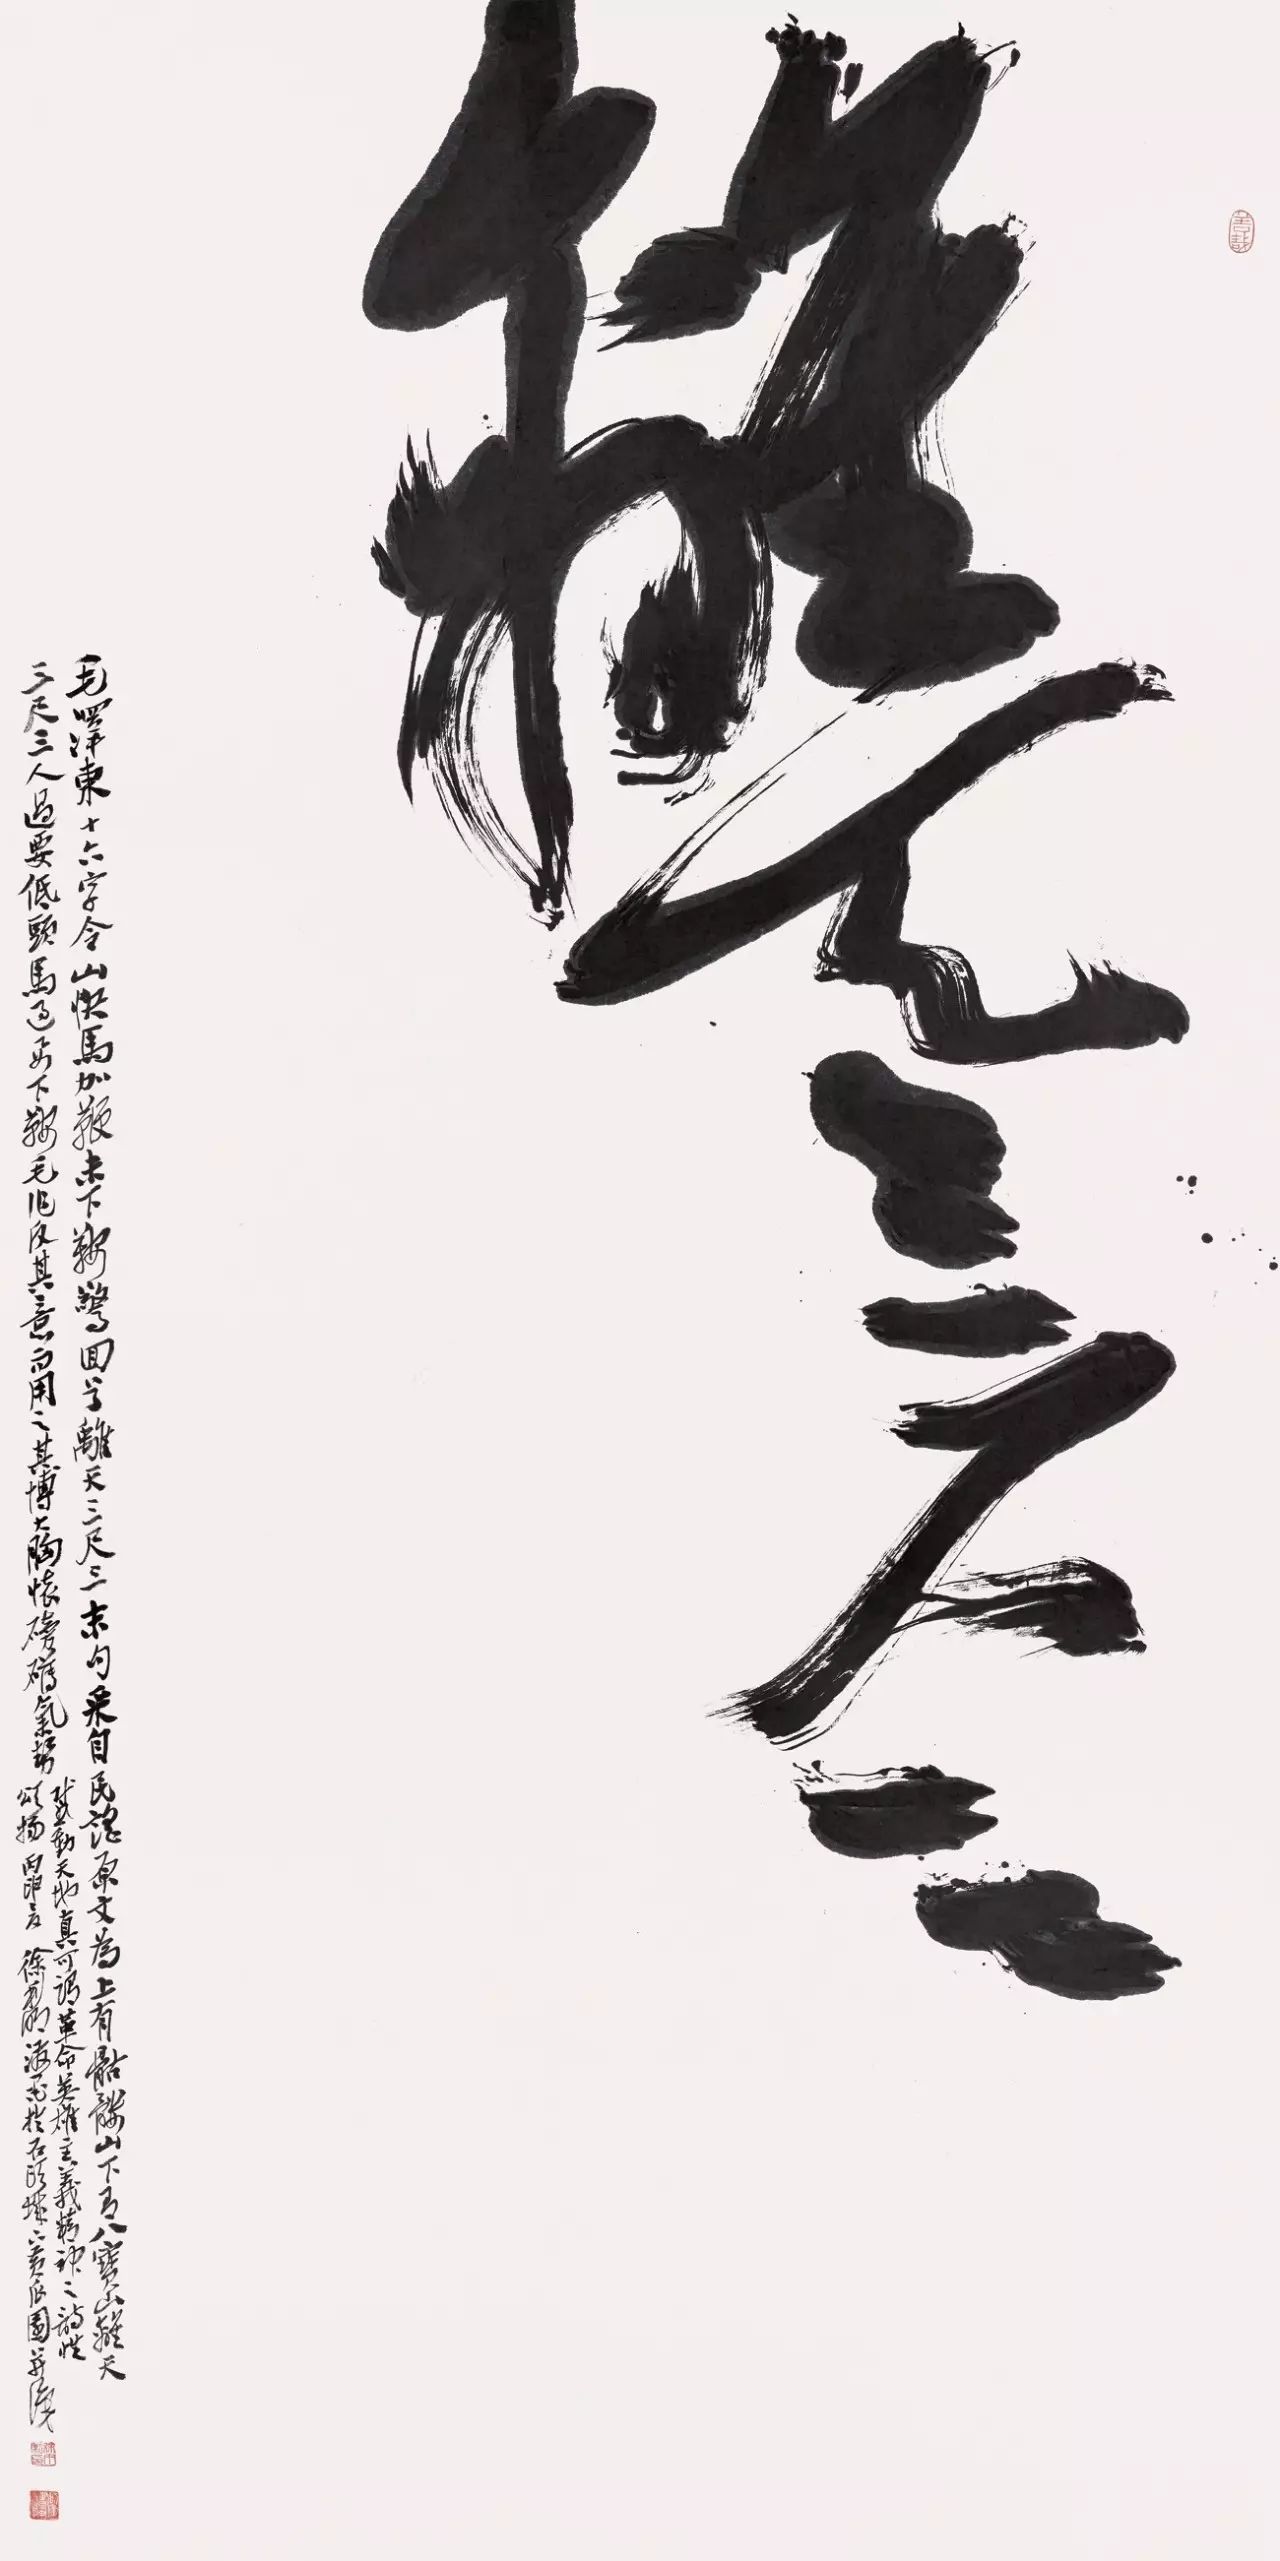 離天三尺三
毛澤東十六字令山快馬加鞭未下鞍驚回首離天三尺三末句采自民謠原文為上有骷髏山下有八寶山離天
三尺三人過要低頭馬過要下鞍毛作反其意而用之其博大胸懷磅礴氣勢
感動天地真可謂革命英雄主義精神之詩性
頌揚丙申 徐利明 於石頭城 黃瓜園並識